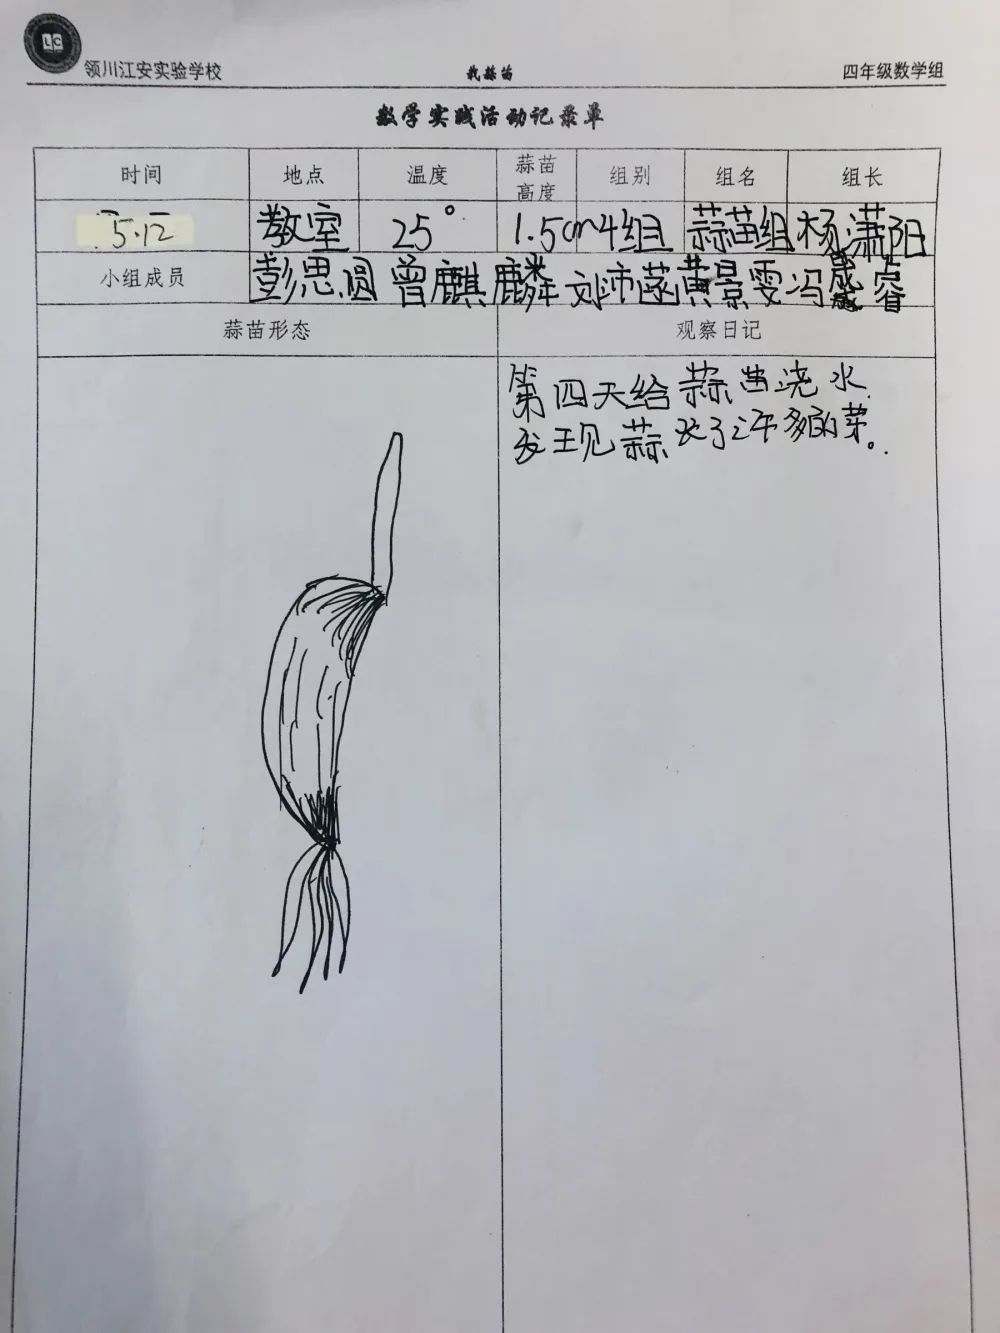 LC
领川江安实验学校 栽蒜苗 四年级数学组
数学实践活动记录单
时间 地点 温度 蒜苗高度 组别 组名 组长
5.12 教室 25° 1.5cm 4组 蒜苗组 杨潇阳
小组成员 彭思圆 曾麒麟 刘沛菡 黄景雯 冯晟睿
蒜苗形态 观察日记
第四天给蒜苗浇水
发现蒜长了许多的芽。